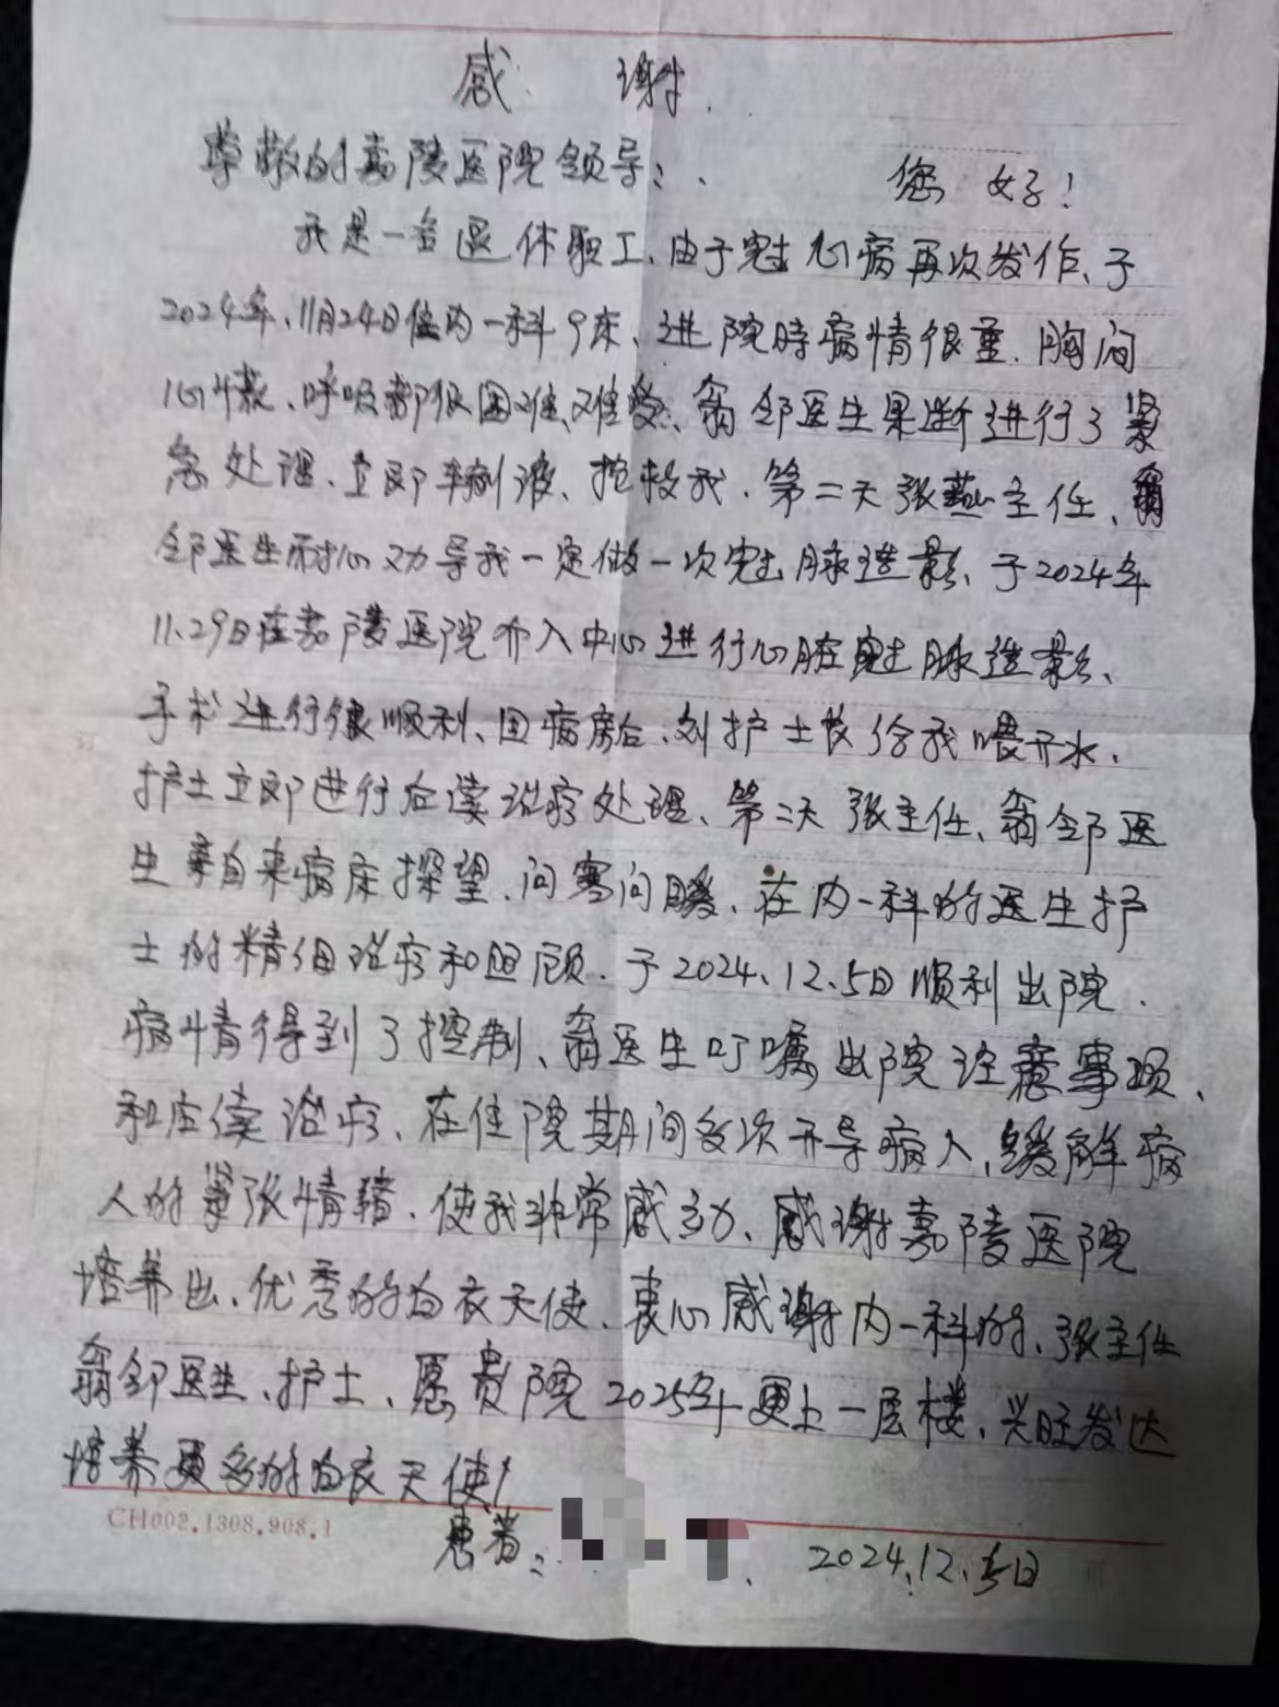 感 谢
尊敬的嘉陵医院领导:
您 好!
我是一名退休职工、由于冠心病再次发作、于
2024年、11月24日住内一科9床、进院時病情很重.胸闷
心慌、呼吸都很困难、难受、翁邹医生果断进行了紧
急处理、立即输液、抢救我.第二天张燕主任、翁
邹医生耐心劝导我一定做一次冠脉造影、于2024年
11.29日在嘉陵医院介入中心进行心脏冠脉造影、
手术进行很顺利、回病房后、刘护士长给我喂开水.
护士立即进行后续治疗处理、第二天张主任、翁邹医
生亲自来病床探望、问寒问暖、在内一科的医生护
士的精细治疗和照顾.于2024、12.5日顺利出院.
病情得到了控制、翁医生叮嘱出院注意事项、
和后续治疗、在住院期间多次开导病人,缓解病
人的紧张情绪.使我非常感动、感谢嘉陵医院
培养出、优秀的白衣天使、衷心感谢内一科的、张主任
翁邹医生、护士、愿贵院2025年更上一层楼、兴旺发达
培养更多的白衣天使!
CH002.1308.908.1
患者:
2024.12.5日